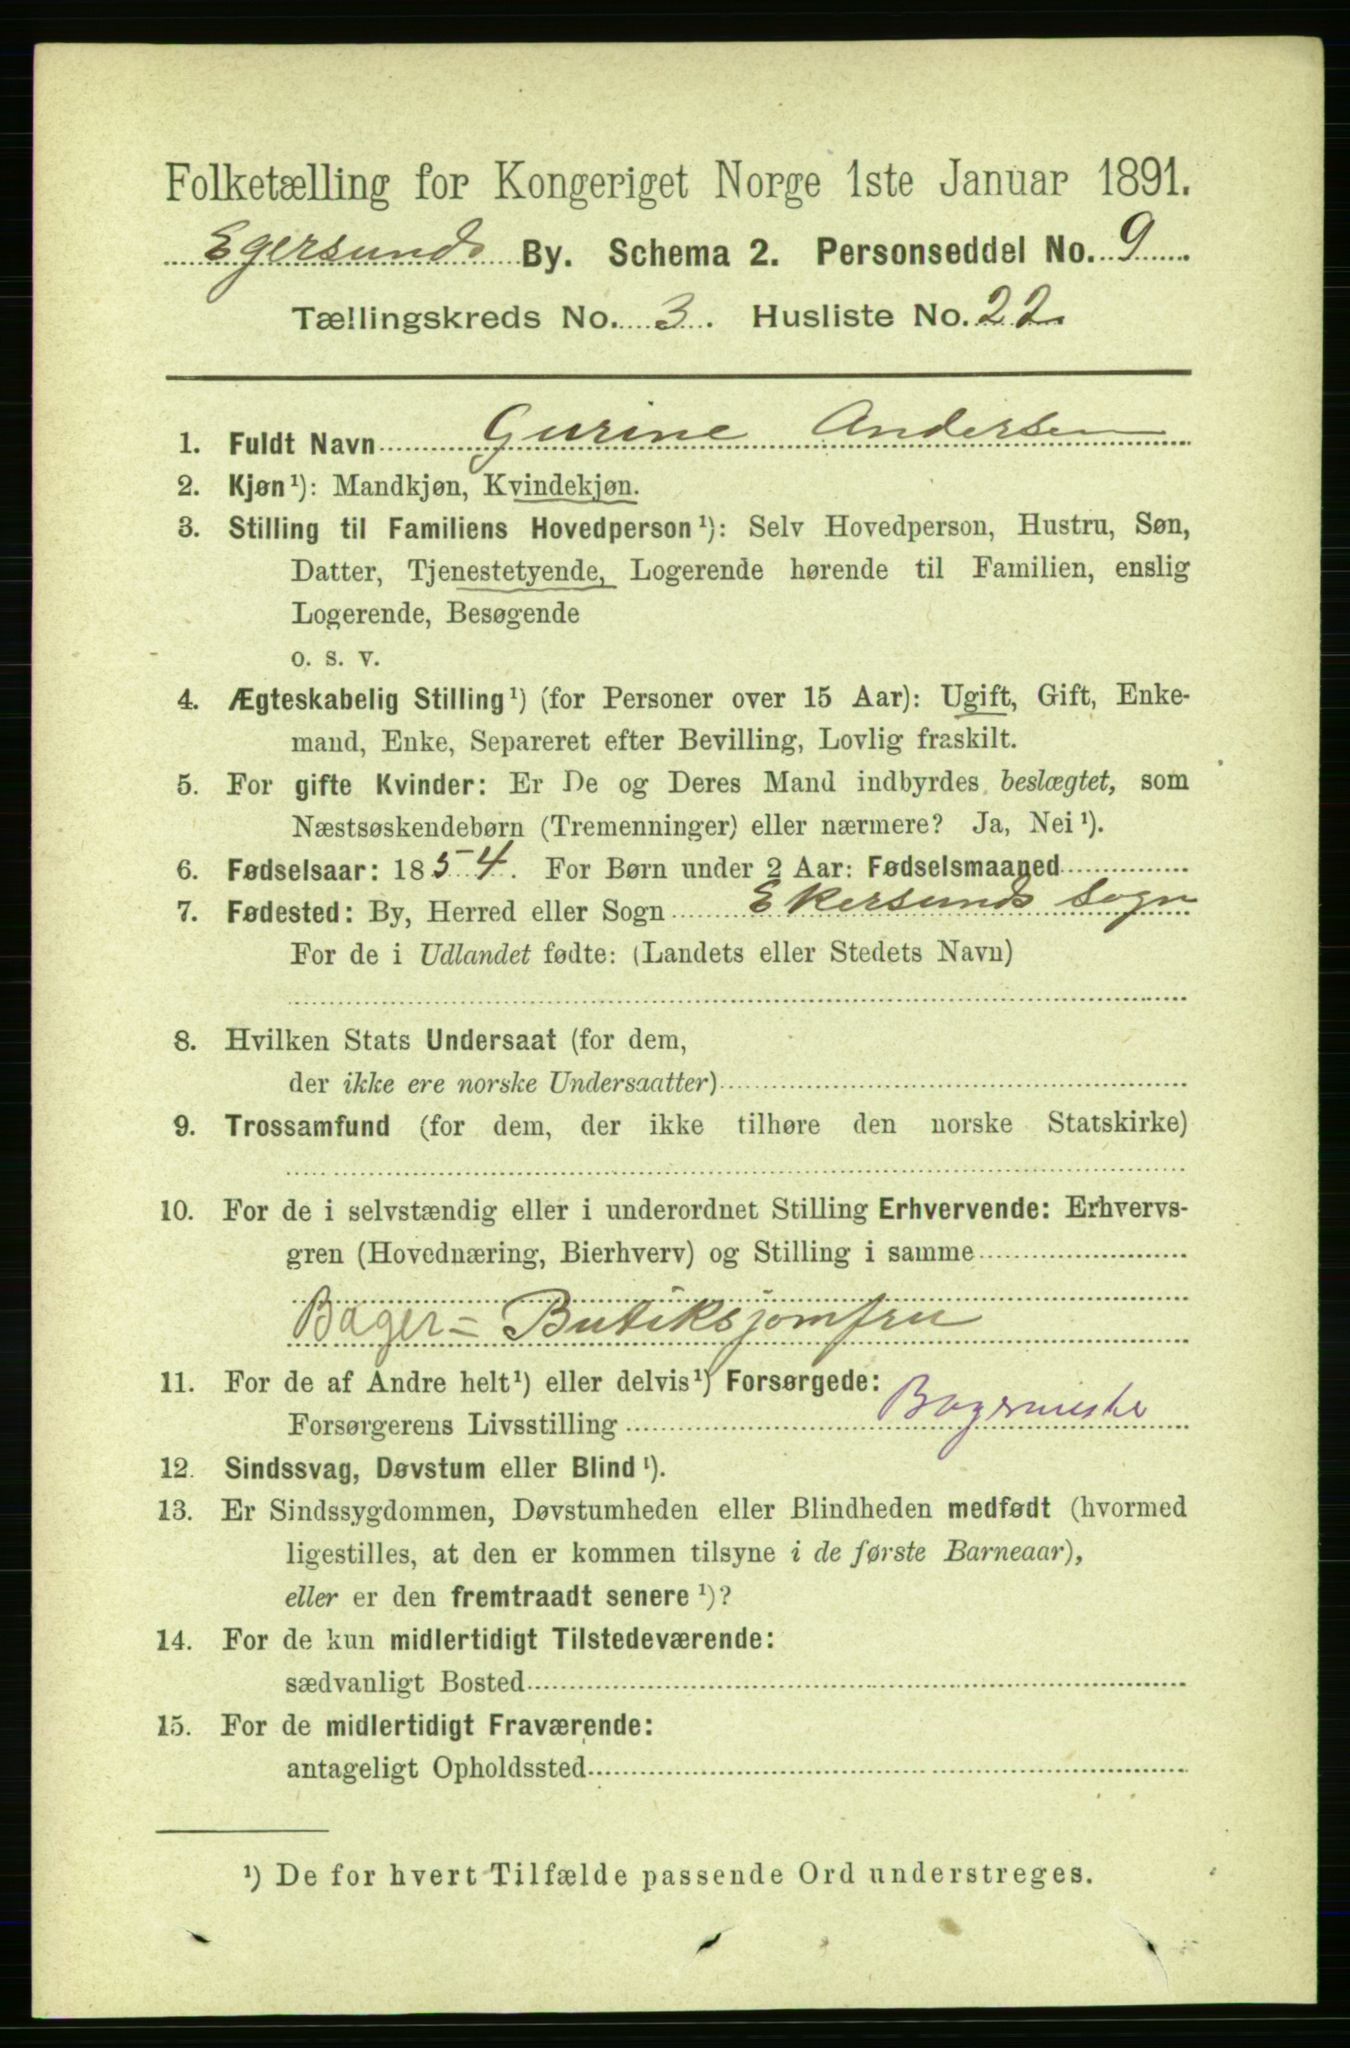 Folketælling for Kongeriget Norge 1ste Januar 1891.
Egersunds By. Schema 2. Personseddel No. 9
Tællingskreds No. 3. Husliste No. 22
1. Fuldt Navn Gurine Andersen
2. Kjøn¹): Mandkjøn, Kvindekjøn.
3. Stilling til Familiens Hovedperson¹): Selv Hovedperson, Hustru, Søn,
Datter, Tjenestetyende, Logerende hørende til Familien, enslig
Logerende, Besøgende
o. s. v.
4. Ægteskabelig Stilling¹) (for Personer over 15 Aar): Ugift, Gift, Enke-
mand, Enke, Separeret efter Bevilling, Lovlig fraskilt.
5. For gifte Kvinder: Er De og Deres Mand indbyrdes beslægtet, som
Næstsøskendebørn (Tremenninger) eller nærmere? Ja, Nei¹).
6. Fødselsaar: 1854. For Børn under 2 Aar: Fødselsmaaned
7. Fødested: By, Herred eller Sogn Ekersunds Sogn
For de i Udlandet fødte: (Landets eller Stedets Navn)
8. Hvilken Stats Undersaat (for dem,
der ikke ere norske Undersaatter)
9. Trossamfund (for dem, der ikke tilhøre den norske Statskirke)
10. For de i selvstændig eller i underordnet Stilling Erhvervende: Erhvervs-
gren (Hovednæring, Bierhverv) og Stilling i samme
Bager= Butiksjomfru
11. For de af Andre helt¹) eller delvis¹) Forsørgede:
Forsørgerens Livsstilling Bagermeste
12. Sindssvag, Døvstum eller Blind¹).
13. Er Sindssygdommen, Døvstumheden eller Blindheden medfødt (hvormed
ligestilles, at den er kommen tilsyne i de første Barneaar),
eller er den fremtraadt senere¹)?
14. For de kun midlertidigt Tilstedeværende:
sædvanligt Bosted
15. For de midlertidigt Fraværende:
antageligt Opholdssted
¹) De for hvert Tilfælde passende Ord understreges.